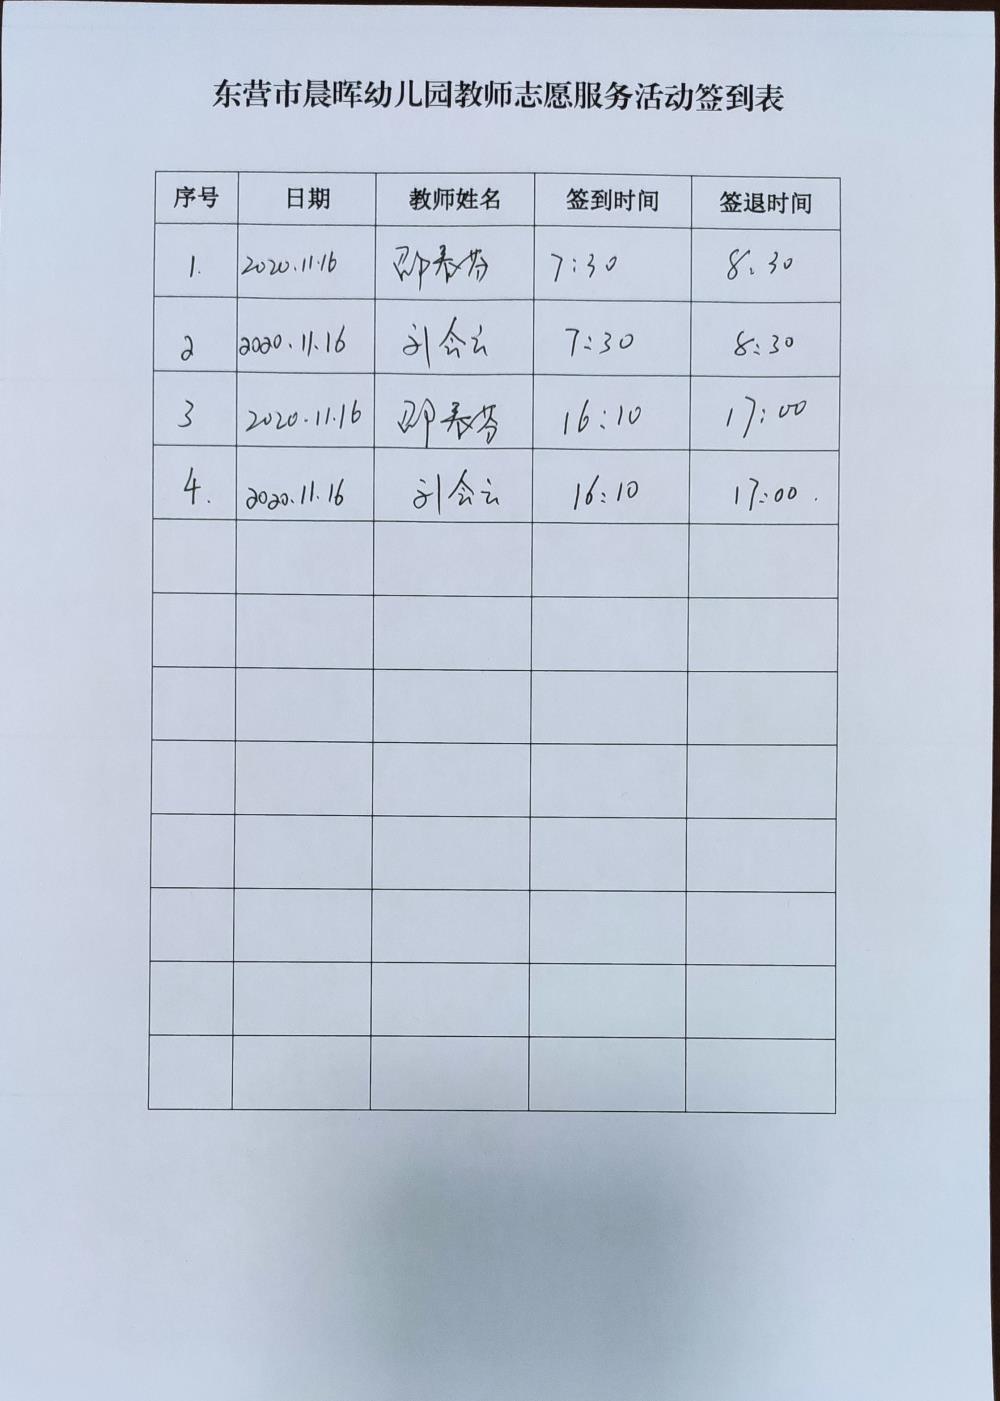 东营市晨晖幼儿园教师志愿服务活动签到表
序号 日期 教师姓名 签到时间 签退时间
1. 2020.11.16 邵春芬 7:30 8:30
2 2020.11.16 刘会云 7:30 8:30
3 2020.11.16 邵春芬 16:10 17:00
4. 2020.11.16 刘会云 16:10 17:00.